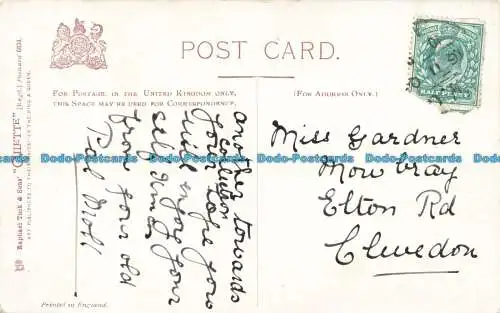 POST CARD.
FOR POSTAGE IN THE UNITED KINGDOM ONLY,
THIS SPACE MAY BE USED FOR CORRESPONDENCE.
(FOR ADDRESS ONLY.)
HALF PENNY
another towards
your
hope you
will enjoy your
self
from your old
Pal
Miss Gardner
Mowbray
Elton Rd
Clevedon
Raphael Tuck & Sons' "OILETTE" [Regd.] Postcard
ART PUBLISHERS TO THEIR MAJESTIES THE KING & QUEEN.
Printed in England.
Dodo-Postcards Dodo-Postcards Dodo-Postcards Dodo-Postcards